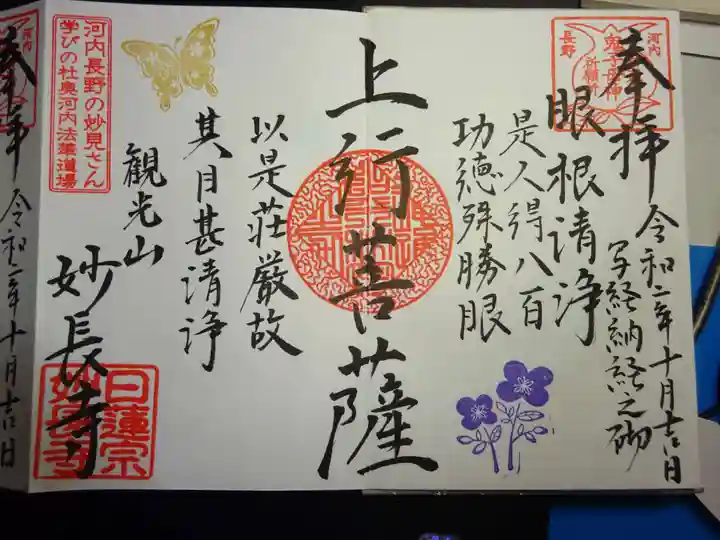 奉拝
令和二年十月吉日
写経納経之砌
河内
長野
鬼子母神
祈願所
眼根清浄
是人得八百
功徳殊勝眼
上行菩薩
以是荘厳故
其目甚清浄
観光山
妙長寺
日蓮宗
妙長寺
河内長野の妙見さん
学びの社奥河内法華道場
河内
奉拝
令和二年十月吉日